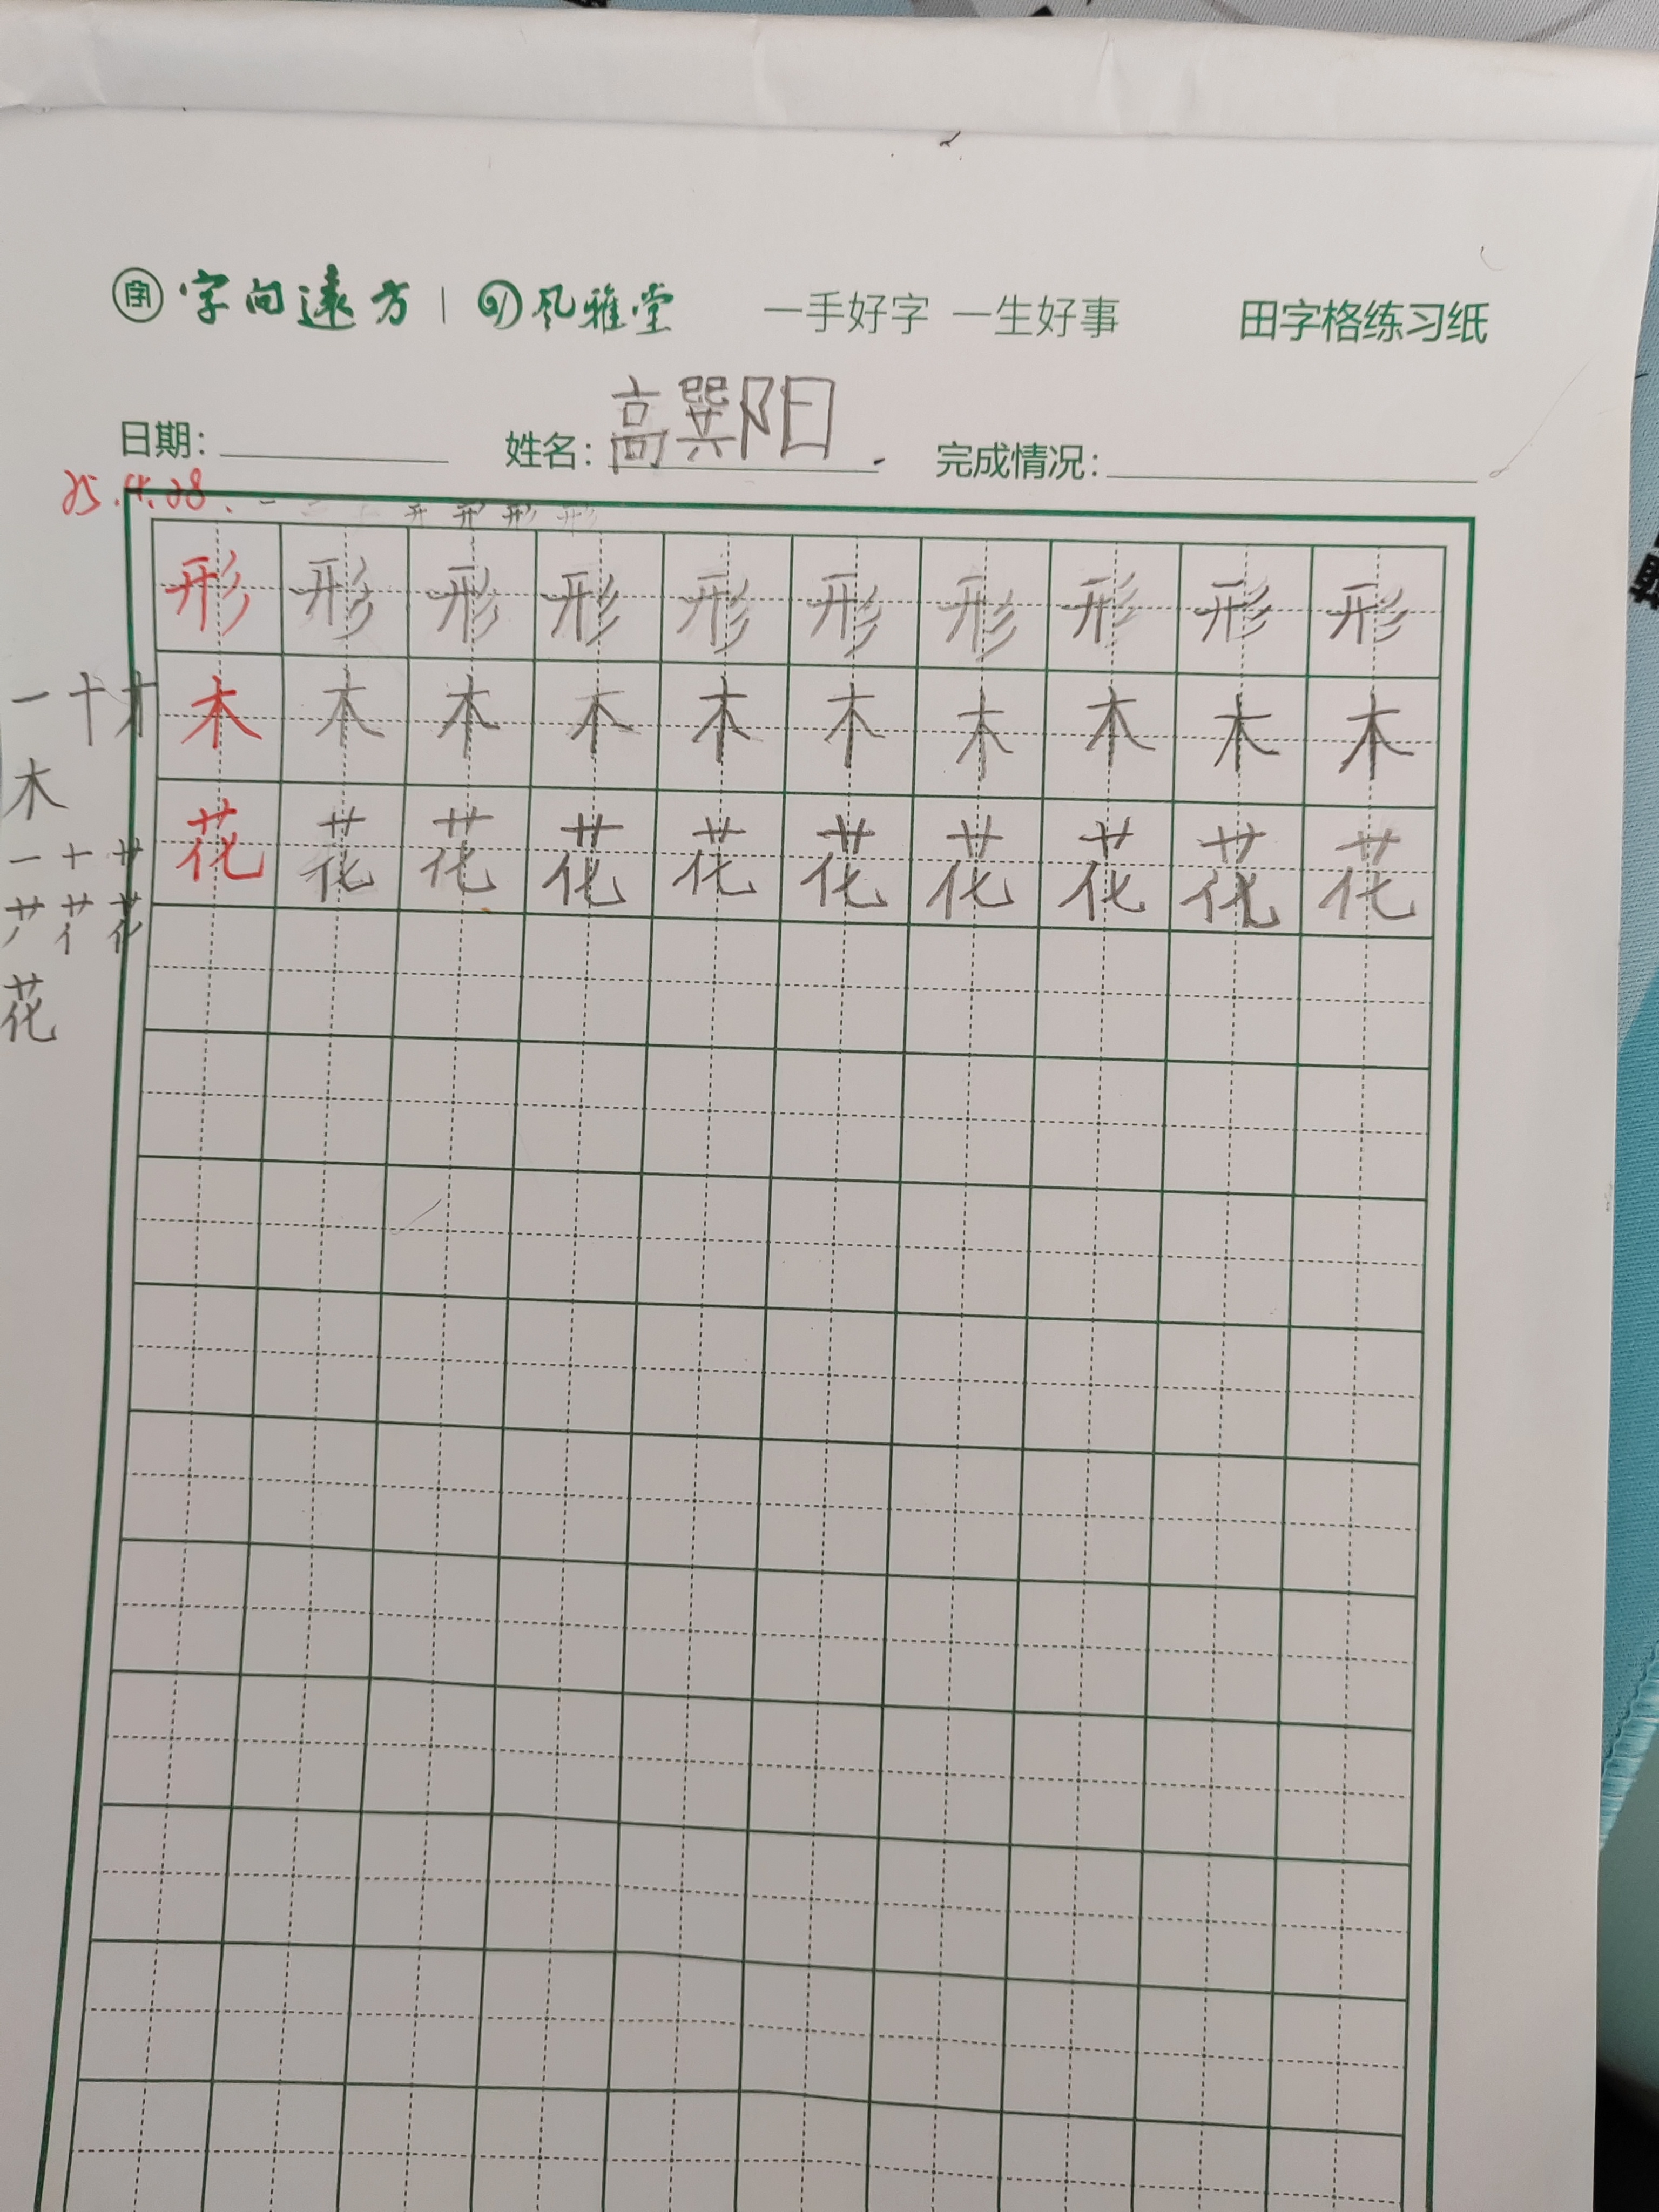 字 字向遠方 | 风雅堂 一手好字 一生好事 田字格练习纸
日期: 姓名: 高巽阳. 完成情况:
25.4.28.
一 二 开 开 形 形
形 形 形 形 形 形 形 形 形 形
一 十 才 木 木 木 木 木 木 木 木 木 木
木
花 花 花 花 花 花 花 花 花 花
一 十 艹
花
花